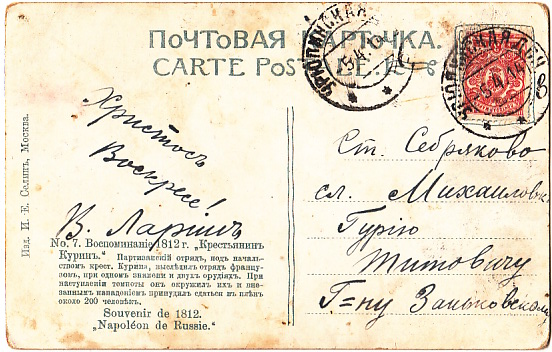 ПОЧТОВАЯ КАРТОЧКА.
CARTE POSTALE.
Христосъ
Воскресе!
В. Ларинъ
No. 7. Воспоминаніе 1812 г. „Крестьянинъ
Куринъ." Партизанскій отрядъ, подъ началь-
ствомъ крест. Курина, выслѣдилъ отрядъ францу-
зовъ, при одномъ знамени и двухъ орудіяхъ. При
наступленіи темноты онъ окружилъ ихъ и вне-
запнымъ нападеніемъ принудилъ сдаться въ плѣнъ
около 200 человѣкъ.
Souvenir de 1812.
„Napoléon de Russie."
Изд. И. Е. Селинъ, Москва.
Ст. Себряково
сл. Михайловк.
Гурію
Титовичу
Г=ну Заньковскому